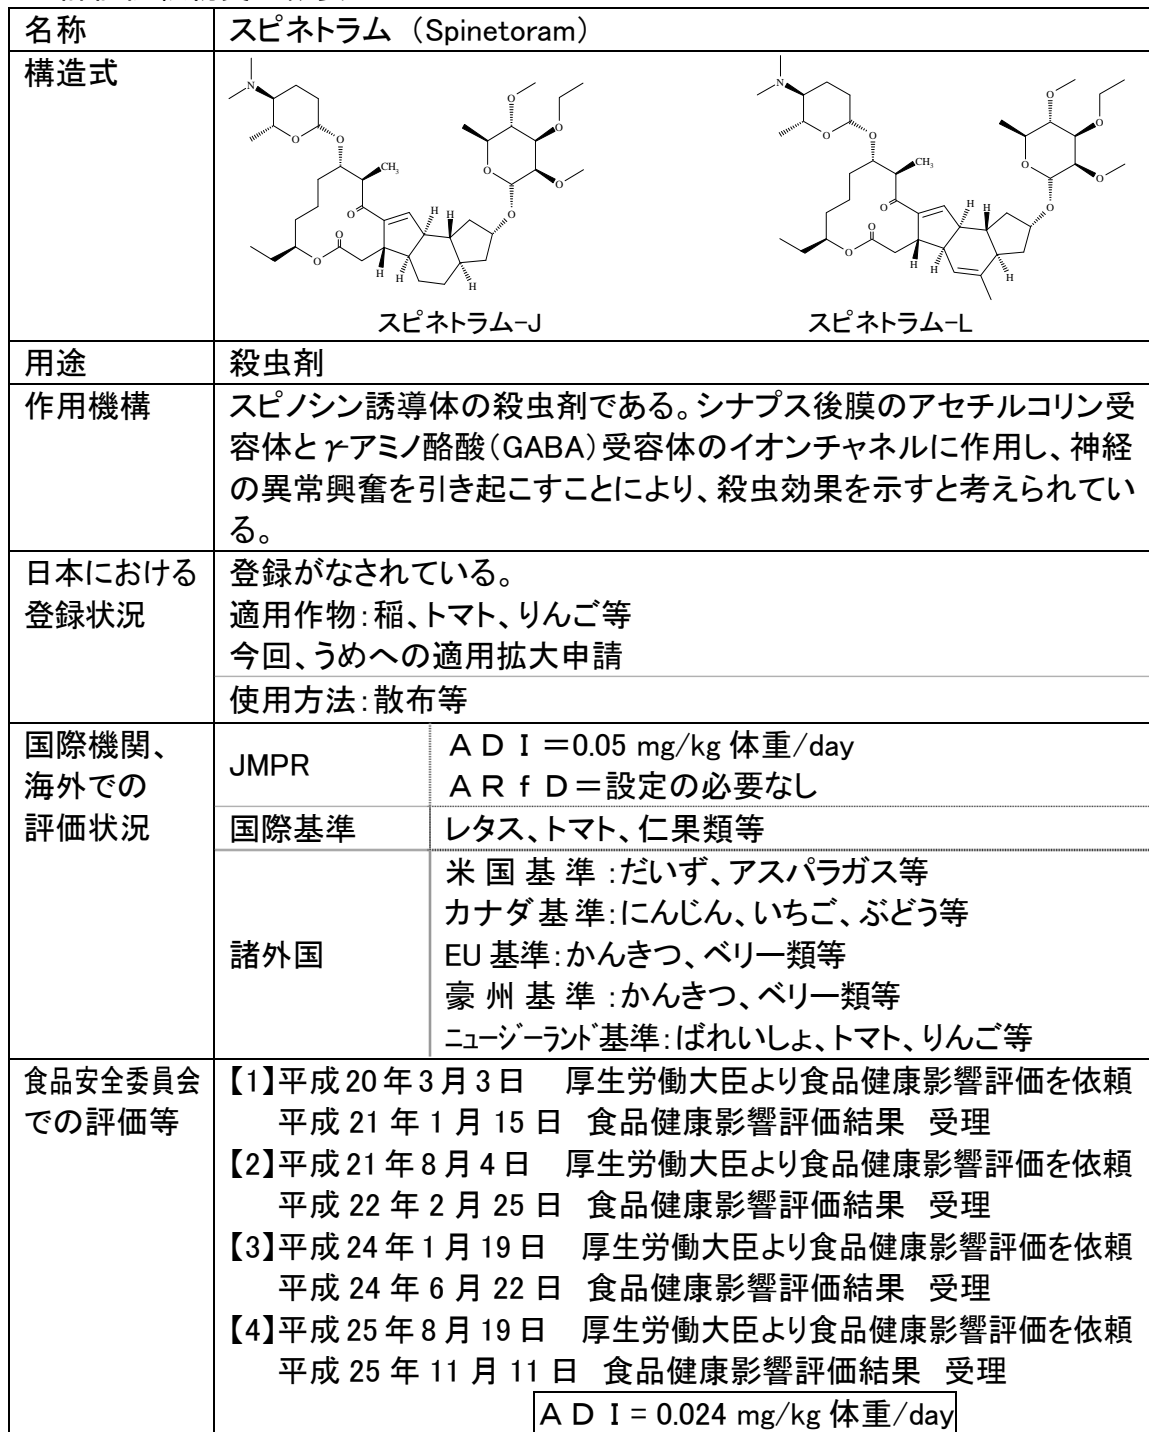 名称
スピネトラム （Spinetoram）
構造式
N
O
O
CH3
O
O
O
H
H
H
H
H
O
O
O
O
O
N
O
O
CH3
O
O
O
H
H
H
H
H
O
O
O
O
O
スピネトラム-J
スピネトラム-L
用途
殺虫剤
作用機構
スピノシン誘導体の殺虫剤である。シナプス後膜のアセチルコリン受
容体とγアミノ酪酸（GABA）受容体のイオンチャネルに作用し、神経
の異常興奮を引き起こすことにより、殺虫効果を示すと考えられてい
る。
日本における
登録状況
登録がなされている。
適用作物：稲、トマト、りんご等
今回、うめへの適用拡大申請
使用方法：散布等
国際機関、
海外での
評価状況
JMPR
ＡＤＩ＝0.05 mg/kg 体重/day
ＡＲｆＤ＝設定の必要なし
国際基準
レタス、トマト、仁果類等
諸外国
米 国 基 準 ：だいず、アスパラガス等
カナダ基準：にんじん、いちご、ぶどう等
EU 基準：かんきつ、ベリー類等
豪 州 基 準 ：かんきつ、ベリー類等
ﾆｭｰｼﾞｰﾗﾝﾄﾞ基準：ばれいしょ、トマト、りんご等
食品安全委員会
での評価等
【1】平成 20 年 3 月 3 日　厚生労働大臣より食品健康影響評価を依頼
平成 21 年 1 月 15 日　食品健康影響評価結果　受理
【2】平成 21 年 8 月 4 日　厚生労働大臣より食品健康影響評価を依頼
平成 22 年 2 月 25 日　食品健康影響評価結果　受理
【3】平成 24 年 1 月 19 日　厚生労働大臣より食品健康影響評価を依頼
平成 24 年 6 月 22 日　食品健康影響評価結果　受理
【4】平成 25 年 8 月 19 日　厚生労働大臣より食品健康影響評価を依頼
平成 25 年 11 月 11 日　食品健康影響評価結果　受理
ＡＤＩ= 0.024 mg/kg 体重/day